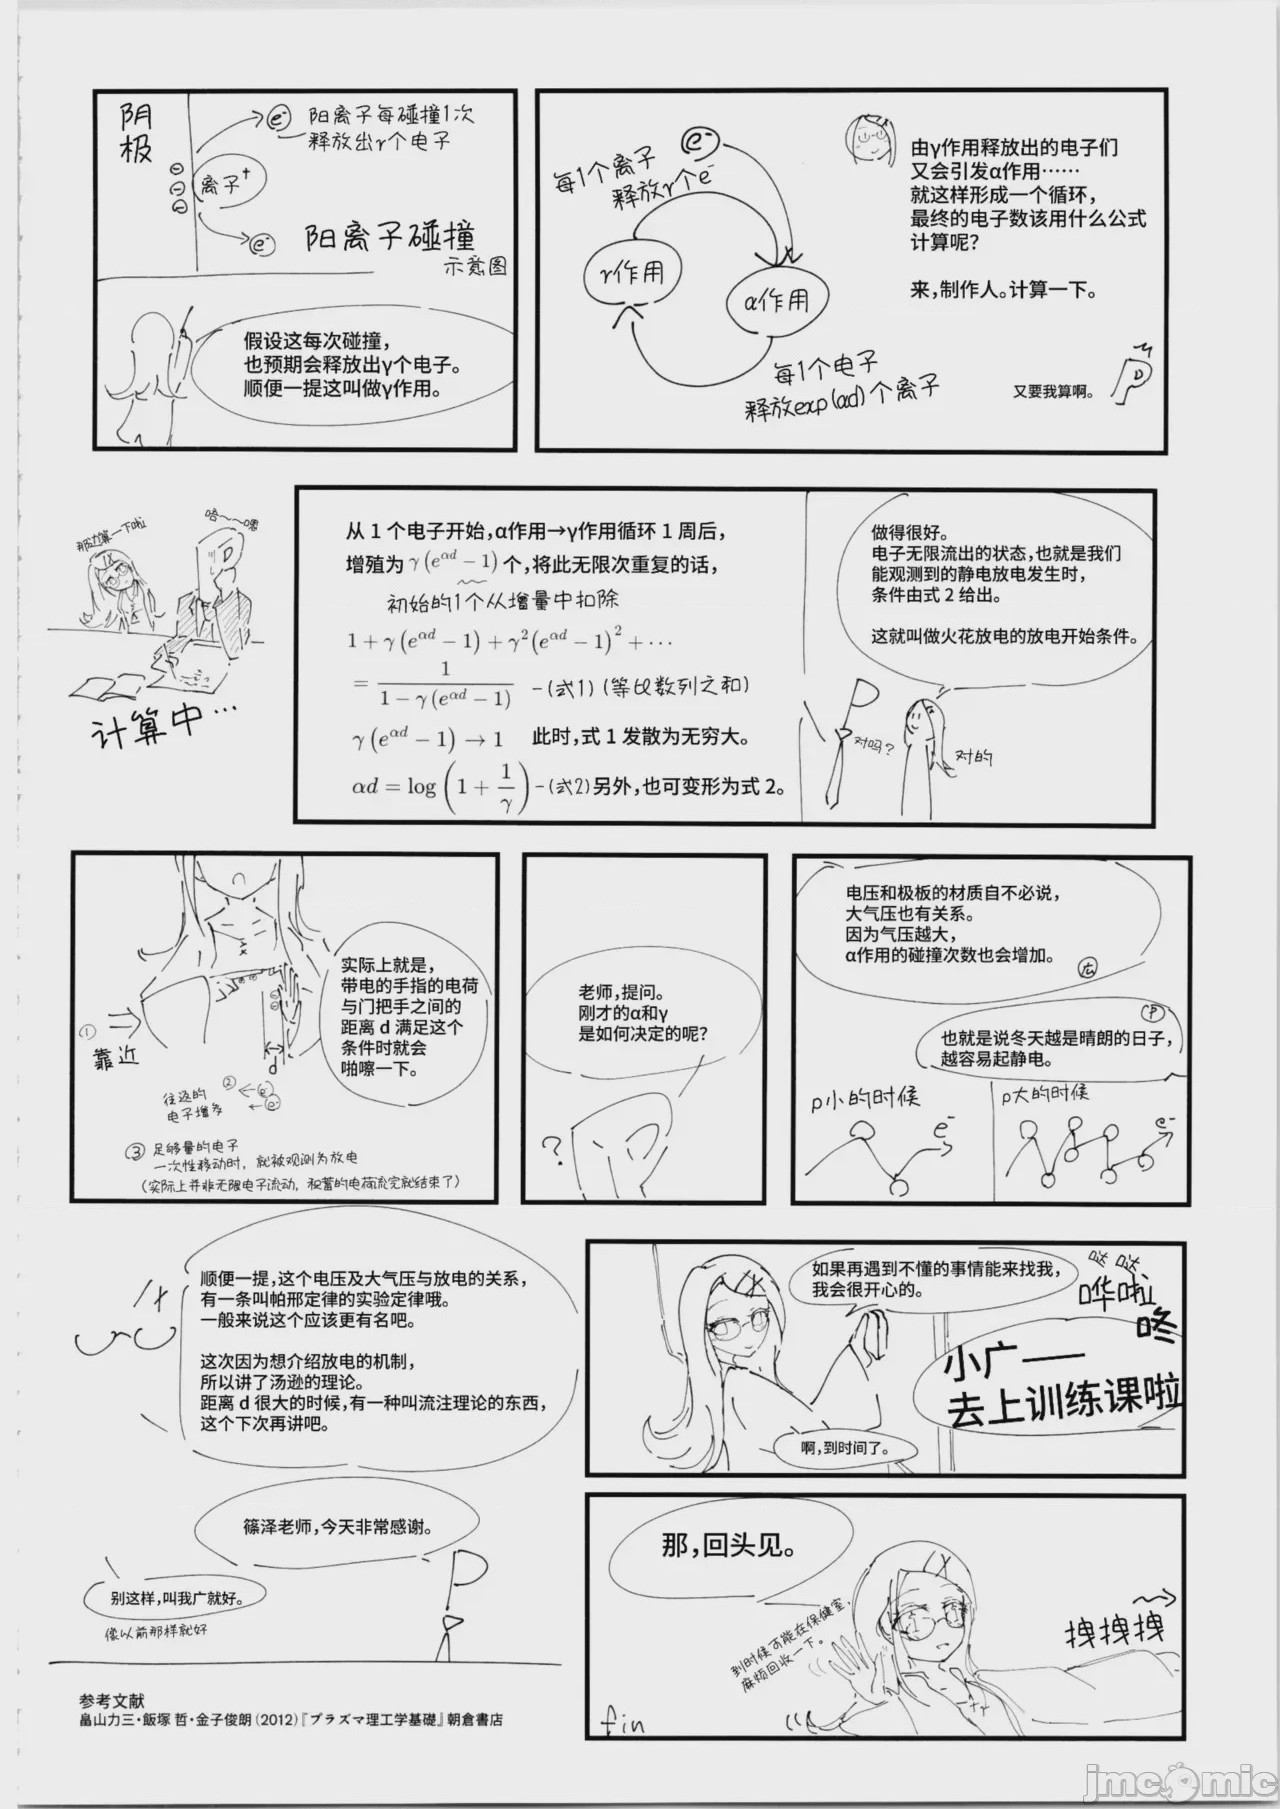 阴极
e⁻
阳离子每碰撞1次
释放出γ个电子
离子⁺
e⁻
阳离子碰撞
示意图
假设这每次碰撞，
也预期会释放出γ个电子。
顺便一提这叫做γ作用。
e⁻
每1个离子
释放γ个e⁻
γ作用
α作用
每1个电子
释放exp(αd)个离子
由γ作用释放出的电子们
又会引发α作用……
就这样形成一个循环，
最终的电子数该用什么公式
计算呢？
来，制作人。计算一下。
又要我算啊。
P
唔～～嗯
P
计算中…
从 1 个电子开始，α作用→γ作用循环 1 周后，
增殖为 γ(e^{αd} − 1) 个，将此无限次重复的话，
初始的1个从增量中扣除
1 + γ(e^{αd} − 1) + γ²(e^{αd} − 1)² + ⋯
= 1/(1 − γ(e^{αd} − 1)) -(式1)(等比数列之和)
γ(e^{αd} − 1) → 1 此时，式 1 发散为无穷大。
αd = log(1 + 1/γ) -(式2) 另外，也可变形为式 2。
做得很好。
电子无限流出的状态，也就是我们
能观测到的静电放电发生时，
条件由式 2 给出。
这就叫做火花放电的放电开始条件。
P
对吗？
对的
实际上就是，
带电的手指的电荷
与门把手之间的
距离 d 满足这个
条件时就会
啪嚓一下。
①
靠近
d
往返的
电子增多
②
e⁻
e⁻
③ 足够量的电子
一次性移动时，就被观测为放电
（实际上并非无限电子流动，积蓄的电荷流完就结束了）
老师，提问。
刚才的α和γ
是如何决定的呢？
?
电压和极板的材质自不必说，
大气压也有关系。
因为气压越大，
α作用的碰撞次数也会增加。
広
P
也就是说冬天越是晴朗的日子，
越容易起静电。
p小的时候
e⁻
p大的时候
e⁻
顺便一提，这个电压及大气压与放电的关系，
有一条叫帕邢定律的实验定律哦。
一般来说这个应该更有名吧。
这次因为想介绍放电的机制，
所以讲了汤逊的理论。
距离 d 很大的时候，有一种叫流注理论的东西，
这个下次再讲吧。
篠泽老师，今天非常感谢。
P
别这样，叫我广就好。
像以前那样就好
如果再遇到不懂的事情能来找我，
我会很开心的。
哒 哒
哗啦
咚
小广——
去上训练课啦
啊，到时间了。
那，回头见。
到时候可能在保健室，
麻烦回收一下。
拽拽拽
fin
参考文献
畠山力三・飯塚 哲・金子俊朗（2012）『プラズマ理工学基礎』朝倉書店
jmcomic